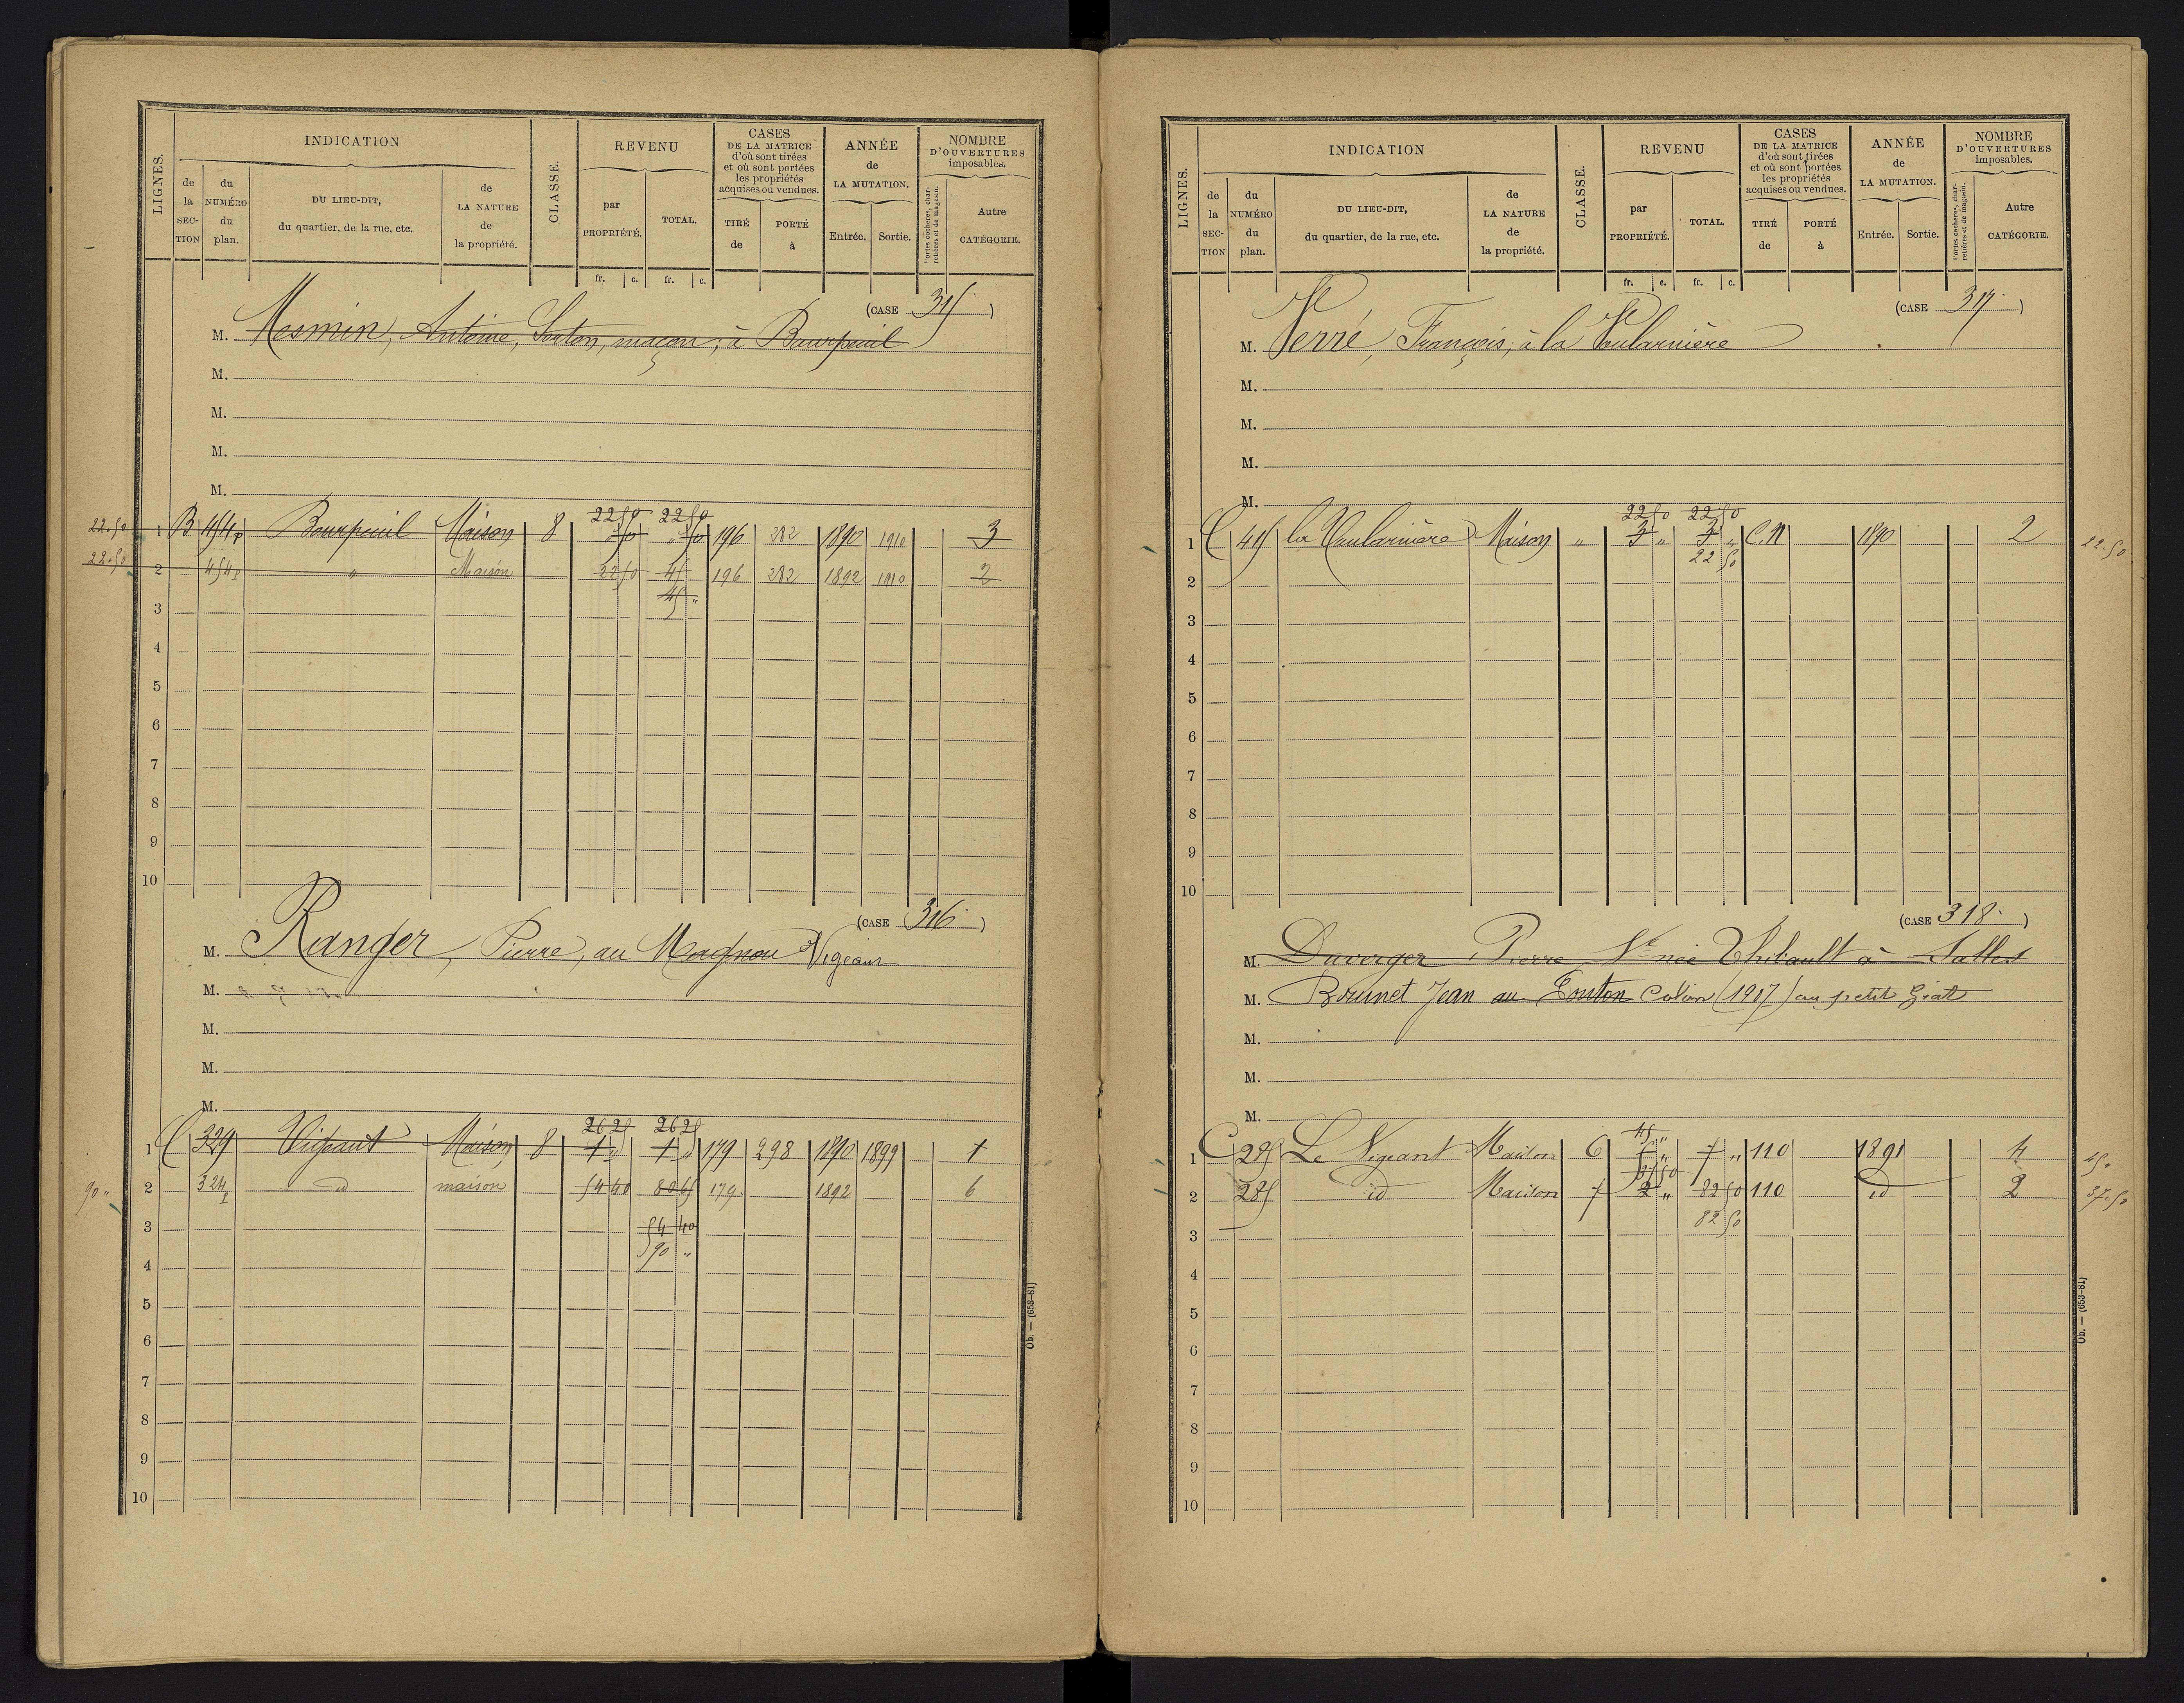 LIGNES.
INDICATION
de la SEC-TION
du NUMÉRO du plan.
DU LIEU-DIT, du quartier, de la rue, etc.
de LA NATURE de la propriété.
CLASSE.
REVENU
par PROPRIÉTÉ.
TOTAL.
fr. c. fr. c.
CASES DE LA MATRICE d'où sont tirées et où sont portées les propriétés acquises ou vendues.
TIRÉ de
PORTÉ à
ANNÉE de LA MUTATION.
Entrée. Sortie.
NOMBRE D'OUVERTURES imposables.
Portes cochères, charretières et de magasin.
Autre CATÉGORIE.
(CASE 315.)
M. Mesmin, Antoine, Souton, maçon, à Bourpeuil
M.
M.
M.
M.
22.50 1 B 454p Bourpeuil Maison 8 22 50 22 50 196 282 1890 1910 3
22.50 2 454p " Maison 22 50 45 196 282 1892 1910 2
3 45 "
4
5
6
7
8
9
10
(CASE 316.)
M. Ranger, Pierre, au Magnou Vigeant
M.
M.
M.
M.
26 25 26 25
1 C 329 Vigeant Maison 8 1 " 1 " 179 298 1890 1899 1
90 " 2 324p id maison 54 40 80 65 179 1892 6
3 54 40
90 "
4
5
6
7
8
9
10
Ob. — (653-81)
LIGNES.
INDICATION
de la SEC-TION
du NUMÉRO du plan.
DU LIEU-DIT, du quartier, de la rue, etc.
de LA NATURE de la propriété.
CLASSE.
REVENU
par PROPRIÉTÉ.
TOTAL.
fr. c. fr. c.
CASES DE LA MATRICE d'où sont tirées et où sont portées les propriétés acquises ou vendues.
TIRÉ de
PORTÉ à
ANNÉE de LA MUTATION.
Entrée. Sortie.
NOMBRE D'OUVERTURES imposables.
Portes cochères, charretières et de magasin.
Autre CATÉGORIE.
(CASE 317.)
M. Verré, François, à la Poularnière
M.
M.
M.
M.
22 50 22 50
1 C 45 la Poularnière Maison " 3 " 3 " C.N 1890 2 22.50
2 22 50
3
4
5
6
7
8
9
10
(CASE 318.)
M. Duverger Pierre Ve née Thibault à Salles
M. Bournet Jean au Souton Colon (1907) au petit Giat
M.
M.
M.
45 "
1 C 285 Le Vigeant Maison 6 7 " 7 " 110 1891 4 45 "
37 50
2 285 id Maison 7 2 " 82 50 110 id 2 37.50
3 82 50
4
5
6
7
8
9
10
Ob. — (653-81)